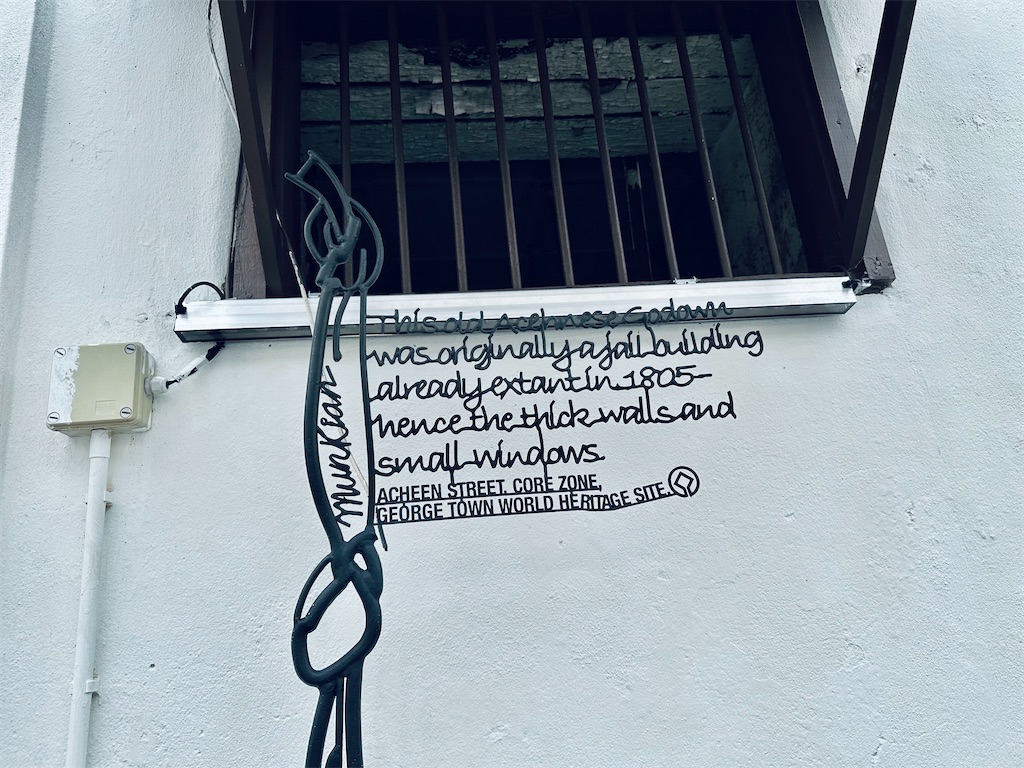 This old Acehnese Godown
was originally a jail building
already extant in 1805-
hence the thick walls and
small windows.
ACHEEN STREET. CORE ZONE,
GEORGE TOWN WORLD HERITAGE SITE.
Mun Kean